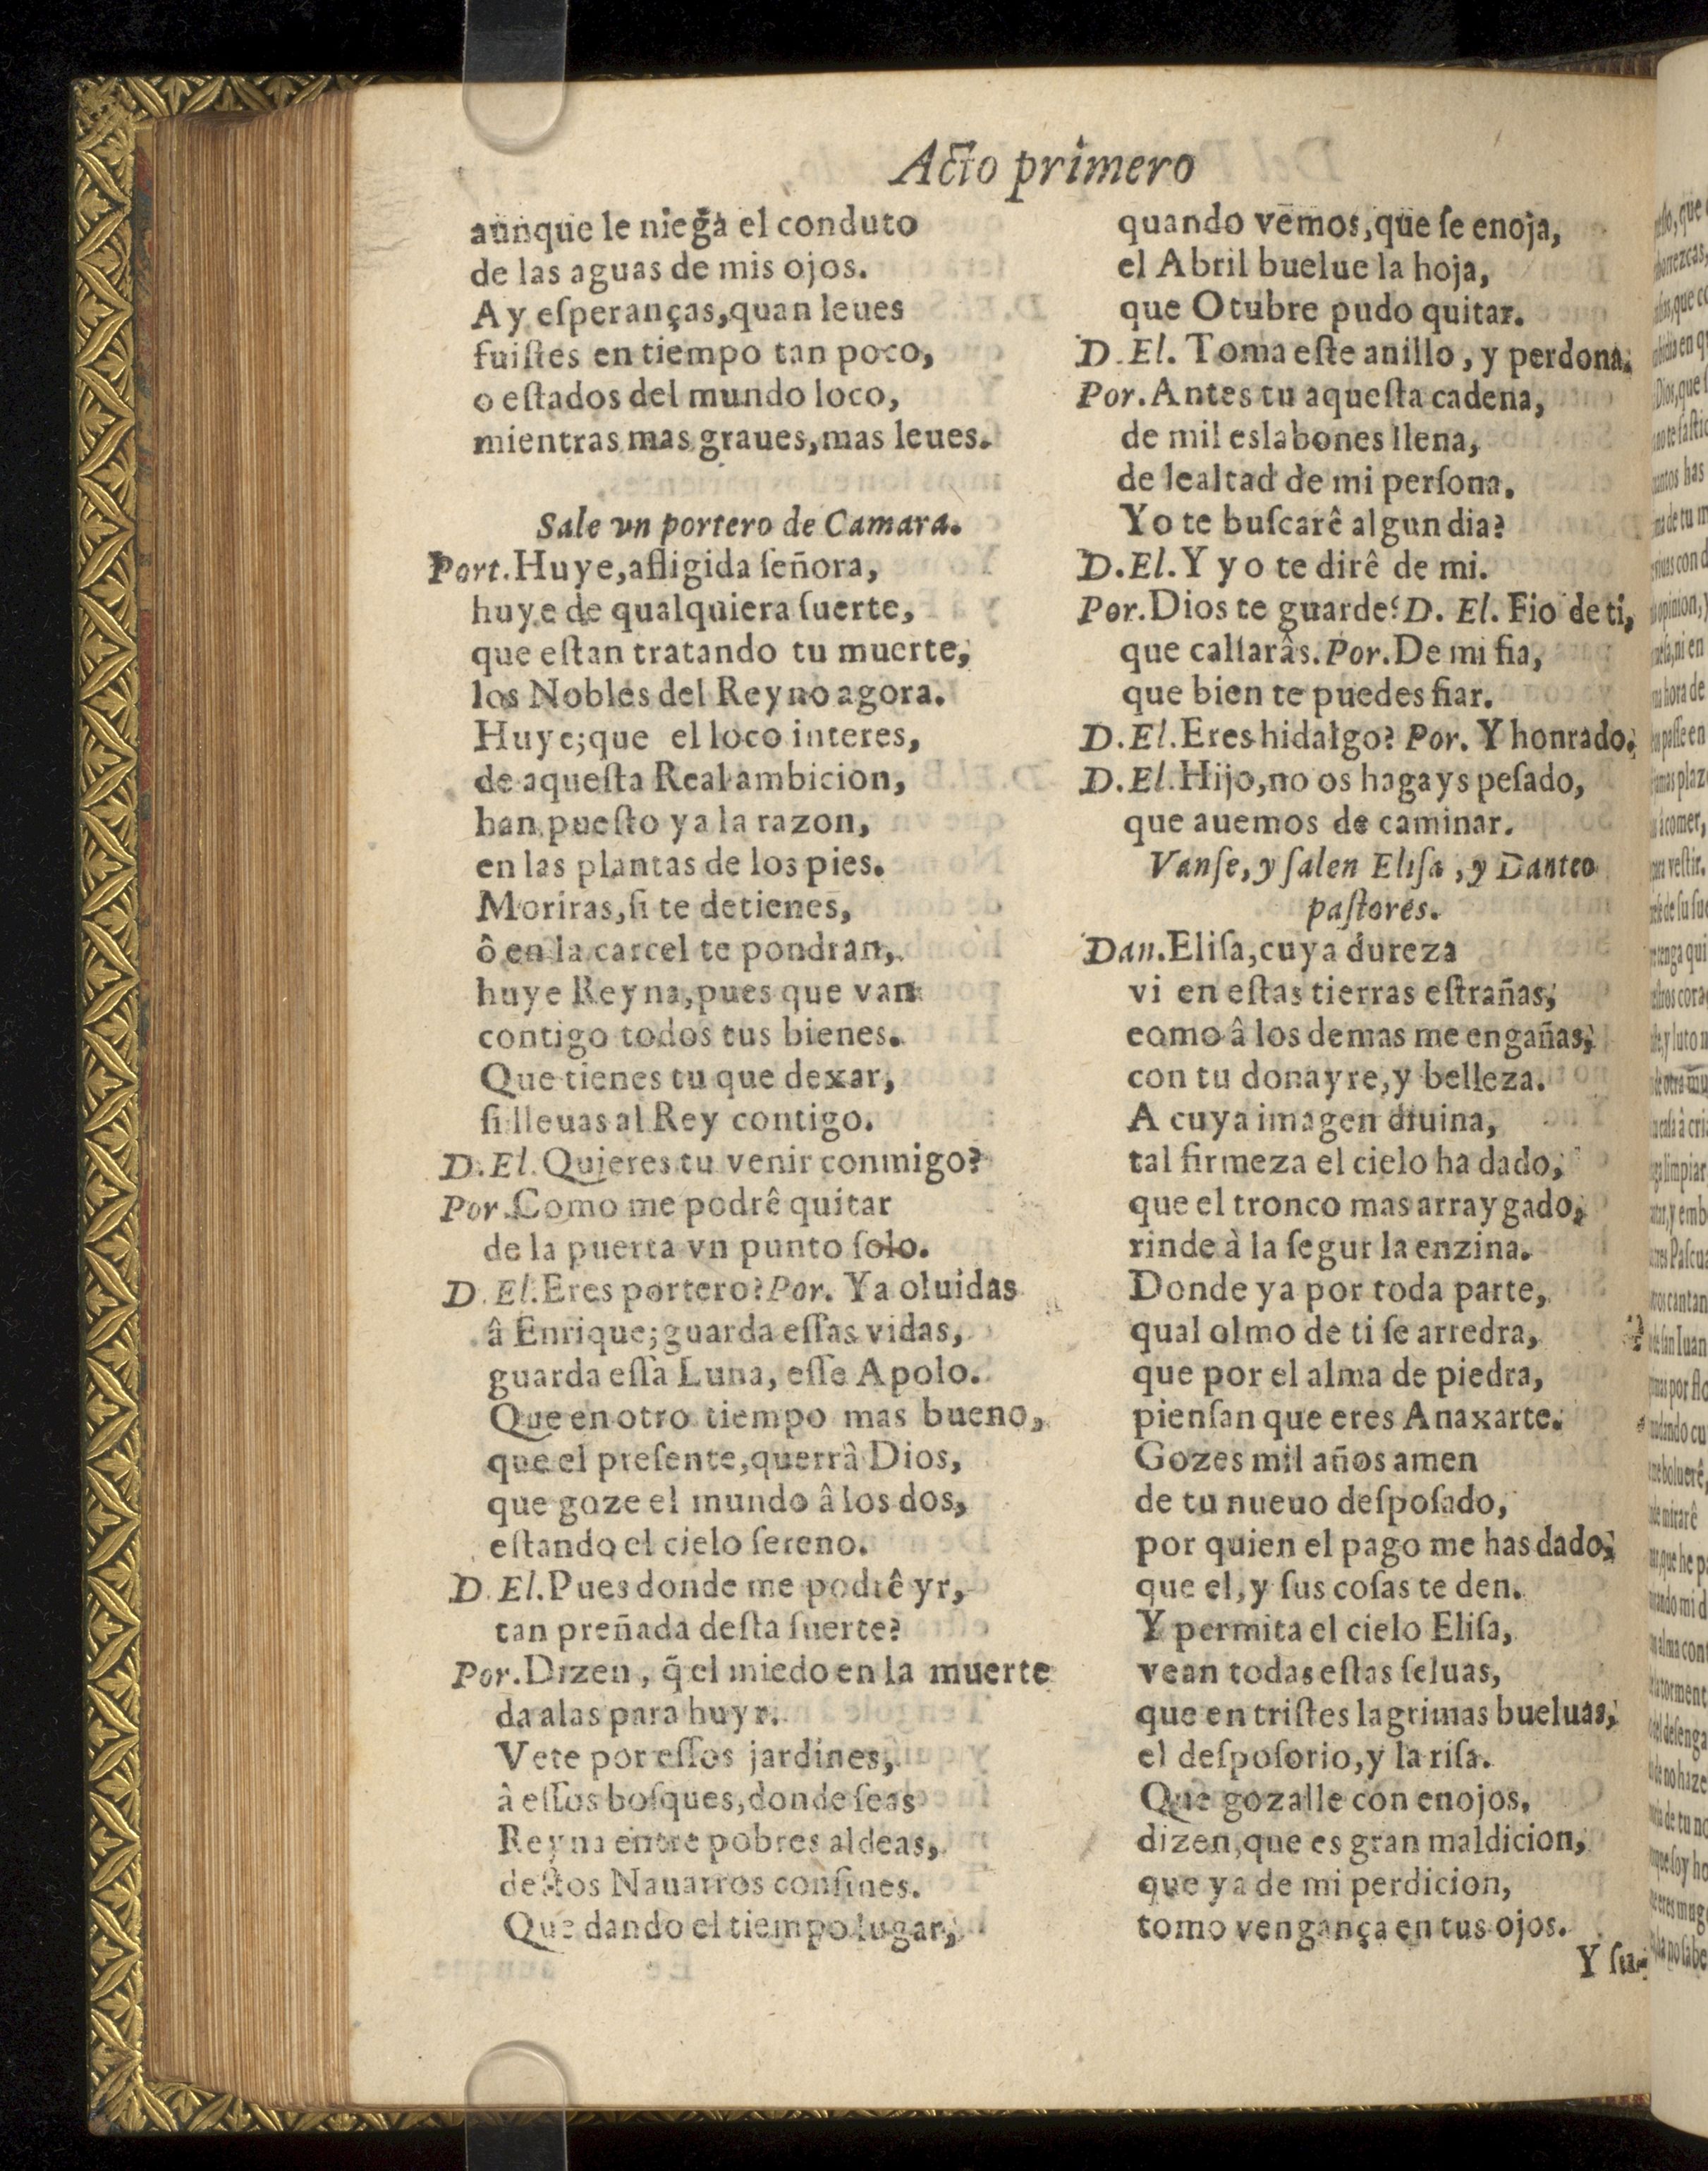 Acto primero
aunque le niegã el conduto
de las aguas de mis ojos.
Ay eſperanças,quan leues
fuiſtes en tiempo tan poco,
o eſtados del mundo loco,
mientras mas graues,mas leues.
Sale vn portero de Camara.
Port.Huye,afligida ſeñora,
huye de qualquiera ſuerte,
que eſtan tratando tu muerte,
los Nobles del Reyno agora.
Huye;que el loco interes,
de aqueſta Real ambicion,
han pueſto ya la razon,
en las plantas de los pies.
Moriras,ſi te detienes,
ô en la carcel te pondran,
huye Reyna,pues que van
contigo todos tus bienes.
Que tienes tu que dexar,
ſi lleuas al Rey contigo.
D.El.Quieres tu venir conmigo?
Por.Como me podrê quitar
de la puerta vn punto ſolo.
D.El.Eres portero?Por. Ya oluidas
â Enrique;guarda eſſas vidas,
guarda eſſa Luna, eſſe Apolo.
Que en otro tiempo mas bueno,
que el preſente,querrâ Dios,
que goze el mundo â los dos,
eſtando el cielo ſereno.
D.El.Pues donde me podrê yr,
tan preñada deſta ſuerte?
Por.Dizen, q̃ el miedo en la muerte
da alas para huyr.
Vete por eſſos jardines,
â eſſos boſques,donde ſeas
Reyna entre pobres aldeas,
deſtos Nauarros confines.
Que dando el tiempo lugar,
quando vemos,que ſe enoja,
el Abril buelue la hoja,
que Otubre pudo quitar.
D.El. Toma eſte anillo, y perdona.
Por.Antes tu aqueſta cadena,
de mil eslabones llena,
de lealtad de mi perſona.
Yo te buſcarê algun dia?
D.El.Y yo te dirê de mi.
Por.Dios te guarde?D. El. Fio de ti,
que callarâs.Por.De mi fia,
que bien te puedes fiar.
D.El.Eres hidalgo? Por. Y honrado.
D.El.Hijo,no os hagays peſado,
que auemos de caminar.
Vanſe,y ſalen Eliſa, y Danteo
paſtores.
Dan.Eliſa,cuya dureza
vi en eſtas tierras eſtrañas,
como â los demas me engañas,
con tu donayre,y belleza.
A cuya imagen diuina,
tal firmeza el cielo ha dado,
que el tronco mas arraygado,
rinde à la ſegur la enzina.
Donde ya por toda parte,
qual olmo de ti ſe arredra,
que por el alma de piedra,
pienſan que eres Anaxarte.
Gozes mil años amen
de tu nueuo deſpoſado,
por quien el pago me has dado,
que el,y ſus coſas te den.
Y permita el cielo Eliſa,
vean todas eſtas ſeluas,
que en triſtes lagrimas bueluas,
el deſpoſorio,y la riſa.
Que gozalle con enojos,
dizen,que es gran maldicion,
que ya de mi perdicion,
tomo vengança en tus ojos.
Y ſu-